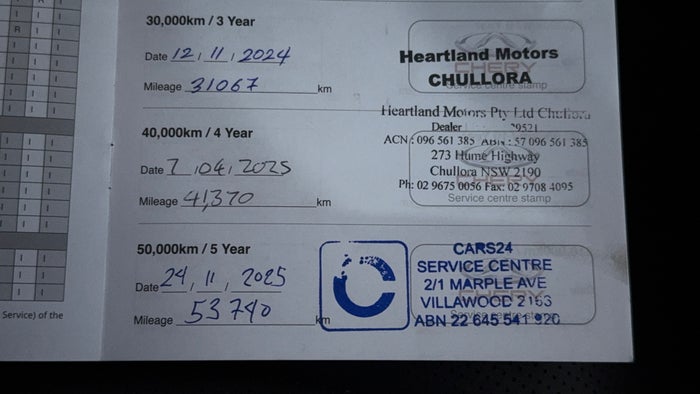 30,000km / 3 Year
Date 12 / 11 / 2024
Mileage 31067 km
Heartland Motors
CHULLORA
CHERY
Service centre stamp
40,000km / 4 Year
Date 7 / 04 / 2025
Mileage 41,370 km
Heartland Motors Pty Ltd Chullora
Dealer 29521
ACN : 096 561 385 ABN : 57 096 561 385
273 Hume Highway
Chullora NSW 2190
Ph: 02 9675 0056 Fax: 02 9708 4095
Service centre stamp
50,000km / 5 Year
Date 24 / 11 / 2025
Mileage 53740 km
CARS24
SERVICE CENTRE
2/1 MARPLE AVE
VILLAWOOD 2163
ABN 22 645 541 920
Service centre stamp
Service) of the